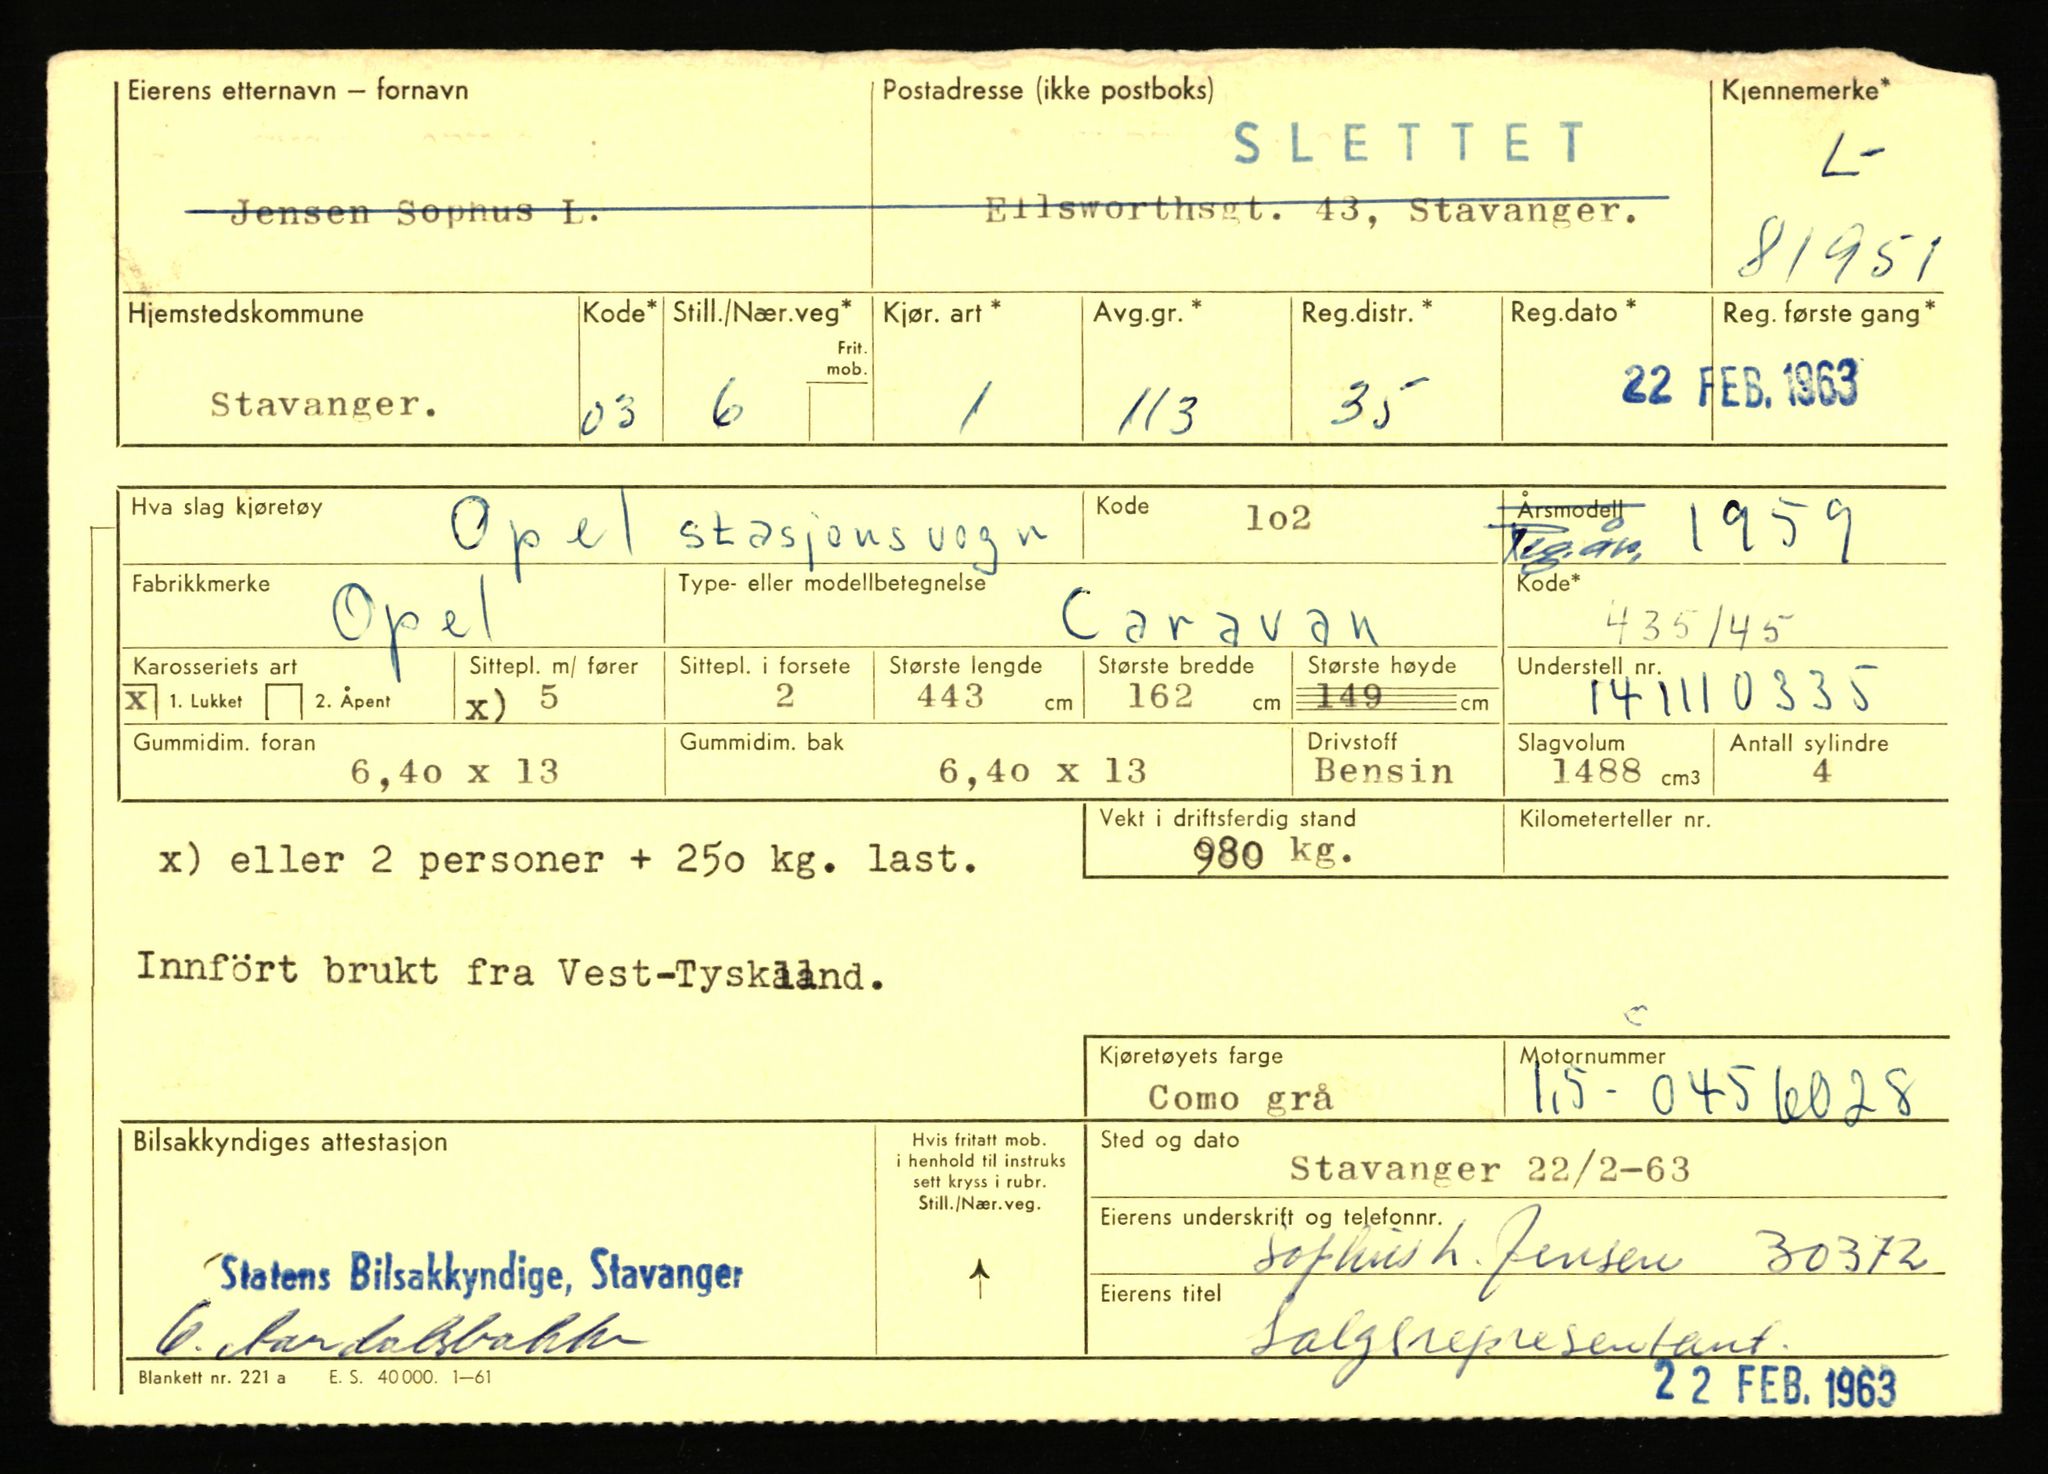 Eierens etternavn – fornavn
Postadresse (ikke postboks)
Kjennemerke*
SLETTET
L-
Jensen Sophus L.
Ellsworthsgt. 43, Stavanger.
81951
Hjemstedskommune
Kode*
Still./Nær.veg*
Kjør. art *
Avg.gr. *
Reg.distr. *
Reg.dato *
Reg. første gang *
Frit.
mob.
Stavanger.
03
6
1
113
35
22 FEB. 1963
Hva slag kjøretøy
Opel stasjonsvogn
Kode
1o2
Årsmodell
Reg.år.
1959
Fabrikkmerke
Opel
Type- eller modellbetegnelse
Caravan
Kode*
435/45
Karosseriets art
Sittepl. m/ fører
Sittepl. i forsete
Største lengde
Største bredde
Største høyde
Understell nr.
X 1. Lukket
2. Åpent
x) 5
2
443 cm
162 cm
149 cm
141110335
Gummidim. foran
Gummidim. bak
Drivstoff
Slagvolum
Antall sylindre
6,4o x 13
6,4o x 13
Bensin
1488 cm3
4
Vekt i driftsferdig stand
Kilometerteller nr.
980 kg.
x) eller 2 personer + 25o kg. last.
Innfört brukt fra Vest-Tyskland.
Kjøretøyets farge
Motornummer
Como grå
1,5- 0456028
Bilsakkyndiges attestasjon
Hvis fritatt mob.
i henhold til instruks
sett kryss i rubr.
Still./Nær.veg.
Sted og dato
Stavanger 22/2-63
Eierens underskrift og telefonnr.
Sophus L. Jensen 30372
Statens Bilsakkyndige, Stavanger
Eierens titel
Salgsrepresentant.
Blankett nr. 221 a E. S. 40 000. 1–61
22 FEB. 1963